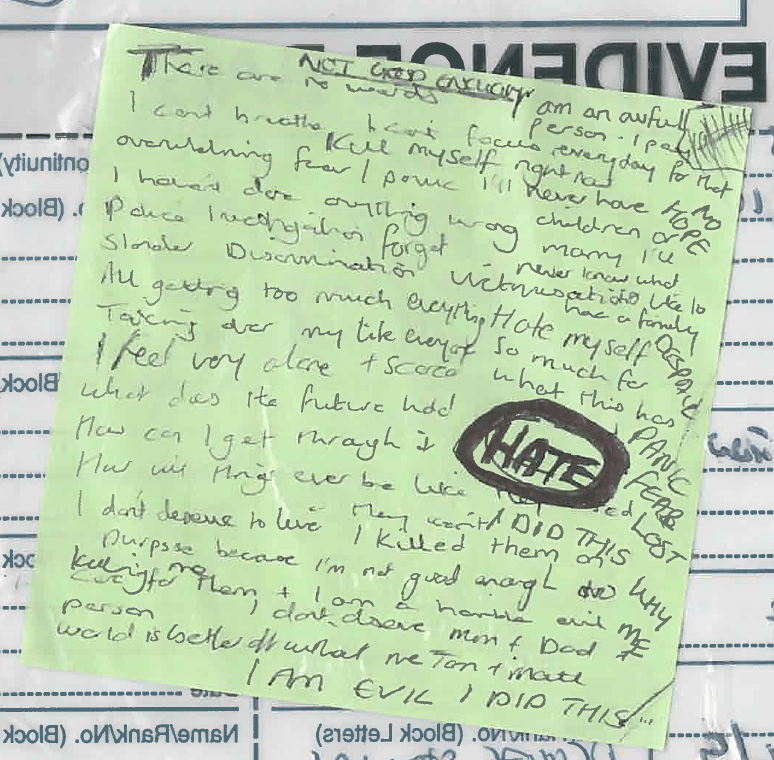 EVIDENCE
NOT GOOD ENOUGH
There are no words
I am an awful person. I pay everyday for that
I cant breathe I cant focus
Kill myself right now
overwhelming fear / panic I'll never have
NO HOPE
I havent done anything wrong children or
marry I'll never know what
Police Investigation forget
its like to have a family
Slander Discrimination Victimisation
All getting too much everything Hate myself
DESPAIR
Taking over my life everyday so much for what this has
I feel very alone + scared
What does the future hold
PANIC
How can I get through it
HATE
FEAR
How will things ever be like
LOST
I DID THIS
I don't deserve to live I killed them on
WHY
purpose because I'm not good enough
to care for them + I am a horrible evil
ME
person I dont deserve mum + Dad
world is better off without me
I AM EVIL I DID THIS
Name/Rank/No. (Block
No. (Block Letters)